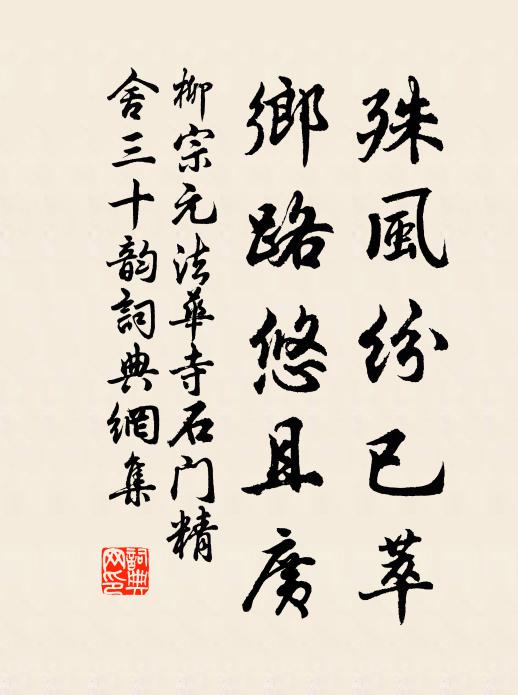 殊風紛已萃
鄉路悠且廣
柳宗元法華寺石门精
舍三十韵詞典網集
詞典网印